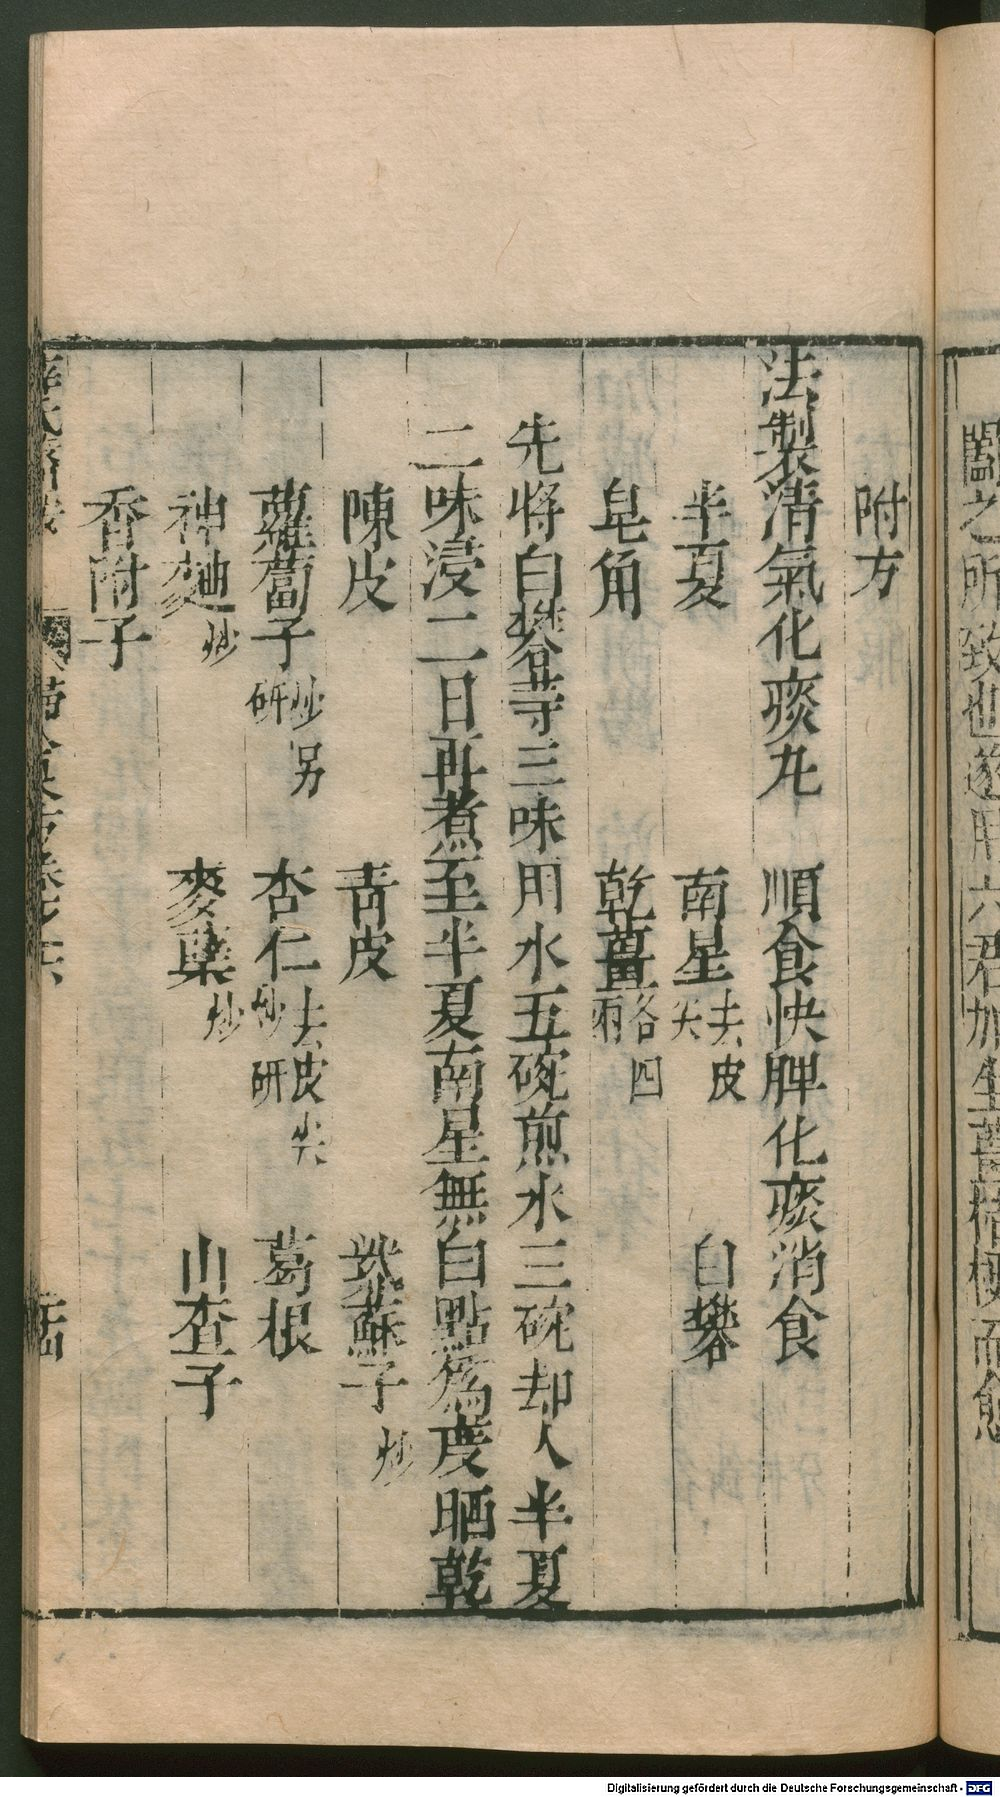 闢之所致也遂用六君加生薑桔梗而愈
附方
法製清氣化痰丸 順食快脾化痰消食
半夏 南星去皮尖 白礬
皂角 乾薑各四兩
先將白礬等三味用水五碗煎水三碗却入半夏
二味浸二日再煮至半夏南星無白點爲度晒乾
陳皮 青皮 紫蘇子炒
蘿蔔子炒另研 杏仁去皮尖炒研 葛根
神麯炒 麥蘖炒 山查子
香附子
薛氏醫案
Digitalisierung gefördert durch die Deutsche Forschungsgemeinschaft - DFG